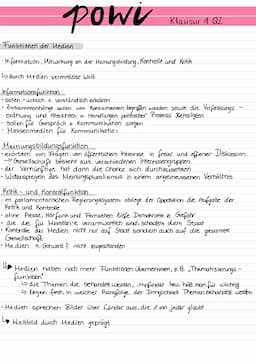 powi Klausur 1 Q2
Funktionen der Medien
Information, Mitwirkung an der Meinungsbildung, Kontrolle und Kritik
↳ durch Medien vermittelte Welt
Informationsfunktion
sollen sachlich u. verständlich erklären
Zusammenhänge sollen von Konsumenten begriffen werden sowie die Verfassungs-
ordnung und Absichten u. Handlungen politischer Prozess Beteiligten
sollen für Gespräch u. Kommunikation sorgen
Massenmedien für Kommunikation
Meinungsbildungsfunktion
erörtern von Fragen von öffentlichem Interesse in freier und offener Diskussion
→ Gesellschaft besteht aus verschiedenen Interessengruppen
der Vernünftige hat dann die Chance sich durchzusetzen
Widerspiegeln des Meinungspluralismus in einem angemessenen Verhältnis
Kritik- und Kontrollfunktion
im parlamentarischen Regierungssystem obliegt der Opposition die Aufgabe der
Kritik und Kontrolle
ohne Presse, Hörfunk und Fernsehen liefe Demokratie Gefahr
die die für Missstände verantwortlich sind, schaden dem Staat
Kontrolle der Medien nicht nur auf Staat sondern auch auf die gesamte
Gesellschaft
Medien 4. Gewalt? nicht zugestanden
Medien haben noch mehr Funktionen übernommen, z.B. „Thematisierungs-
funktion"
↳ die Themen die behandelt werden, empfindet man für wichtig
↳ legen fest in welcher Rangfolge der Dringlichkeit Themen behandelt werden
Medien sprechen Bilder über Länder aus, die
↳ Weltbild durch Medien geprägt